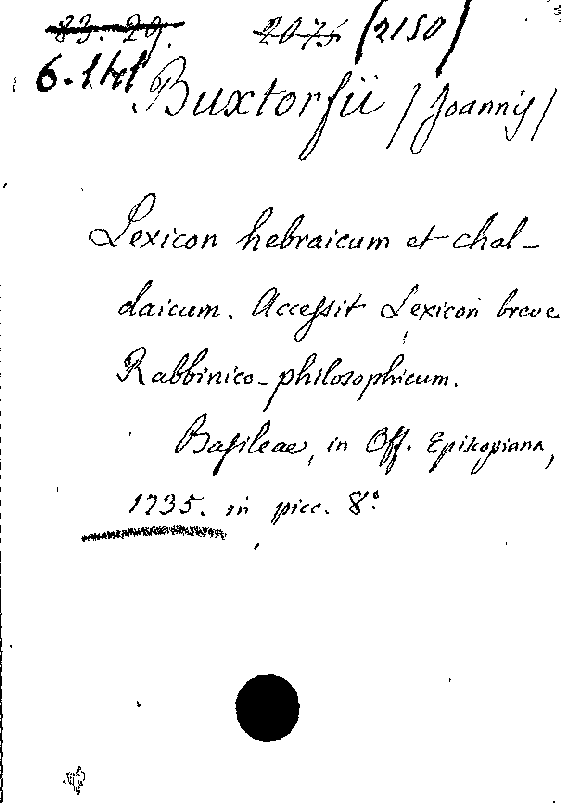 83. 29. 2075 (2150)
6.
Buxtorfii (Joannis)
Lexicon hebraicum et chal-
daicum. Accessit Lexicon breve
Rabbinico-philosophicum.
Basileae, in Off. Episcopiana,
1735. in picc. 8°